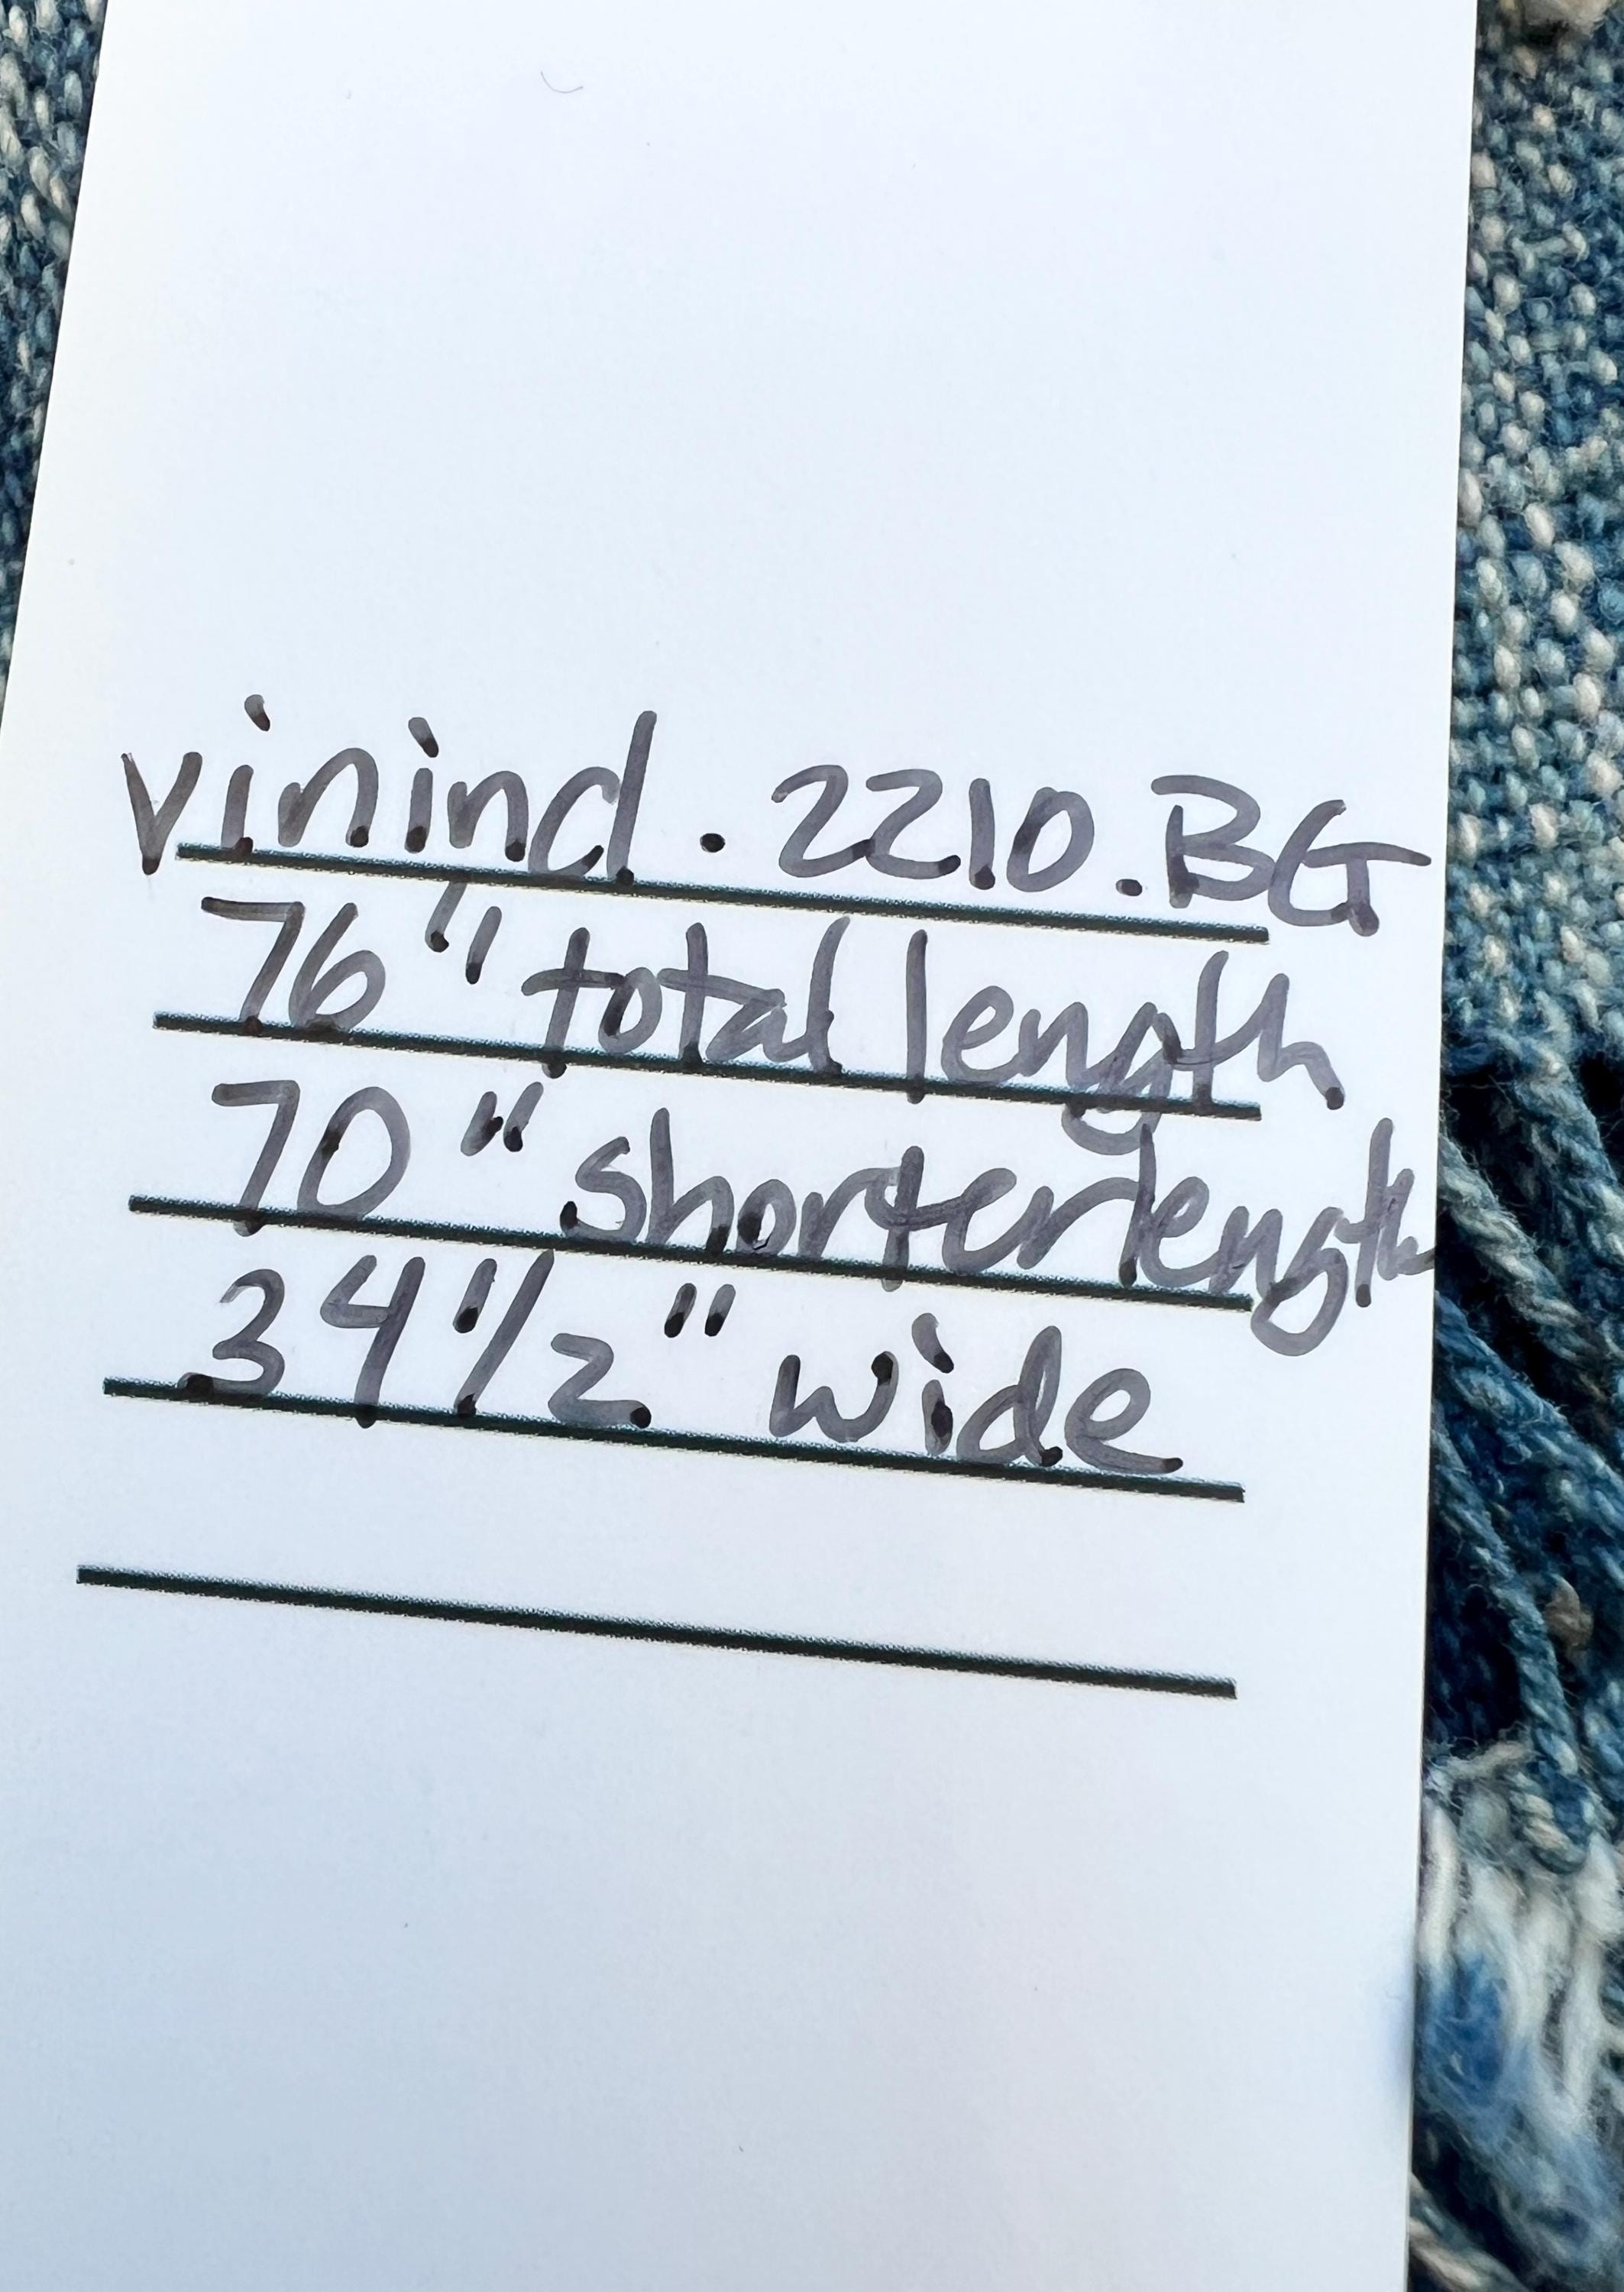 vinind. 2210.BG
76" total length
70" shorter length
34 1/2" wide